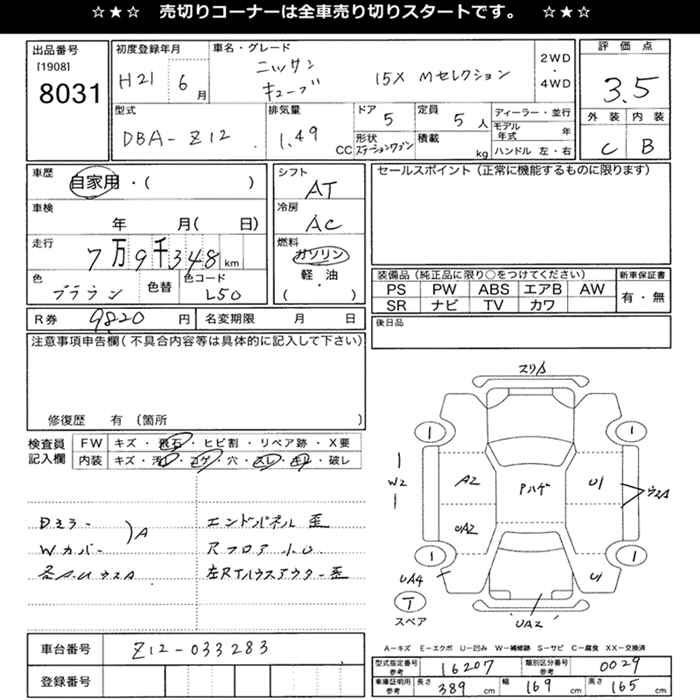 ☆★☆ 売切りコーナーは全車売り切りスタートです。 ☆★☆
出品番号 初度登録年月 車名・グレード 2WD・4WD 評価点
[1908]
8031 H21 6月 ニッサン キューブ 15X Mセレクション 3.5
型式 排気量 ドア 5 定員 5人 ディーラー・並行 外装 内装
DBA-Z12 1.49 CC 形状 ステーションワゴン 積載 kg モデル年式 年 C B
ハンドル 左・右
車歴 自家用・( ) シフト AT セールスポイント(正常に機能するものに限ります)
車検 年 月( 日) 冷房 AC
走行 7万9千348km 燃料 ガソリン 軽・油 ( )
色 ブラウン 色替 色コード L50
装備品(純正品に限り○をつけてください) 新車保証書
PS PW ABS エアB AW 有・無
SR ナビ TV カワ
R券 9820円 名変期限 月 日 後日品
注意事項申告欄(不具合内容等は具体的に記入して下さい)
修復歴 有 (箇所
検査員記入欄 FW キズ・飛石・ヒビ割・リペア跡・X要
内装 キズ・汚れ・コゲ・穴・スレ・キレ・破レ
Dミラー
Wカバー )A
各A.UウスA
エンドパネル歪
Rフロア小U
左RTハウスアウター歪
スリA
1 1
W2 A2 Pハゲ U1 ウスA
UA2
1 U1 1
UA4
T
スペア UA2
A-キズ E-エクボ U-凹み W-補修跡 S-サビ C-腐食 XX-交換済
車台番号 Z12-033283
登録番号
型式指定番号 参考 16207 類別区分番号 参考 0029
車庫証明用 参考 長さ 389 cm 幅 169 cm 高さ 165 cm